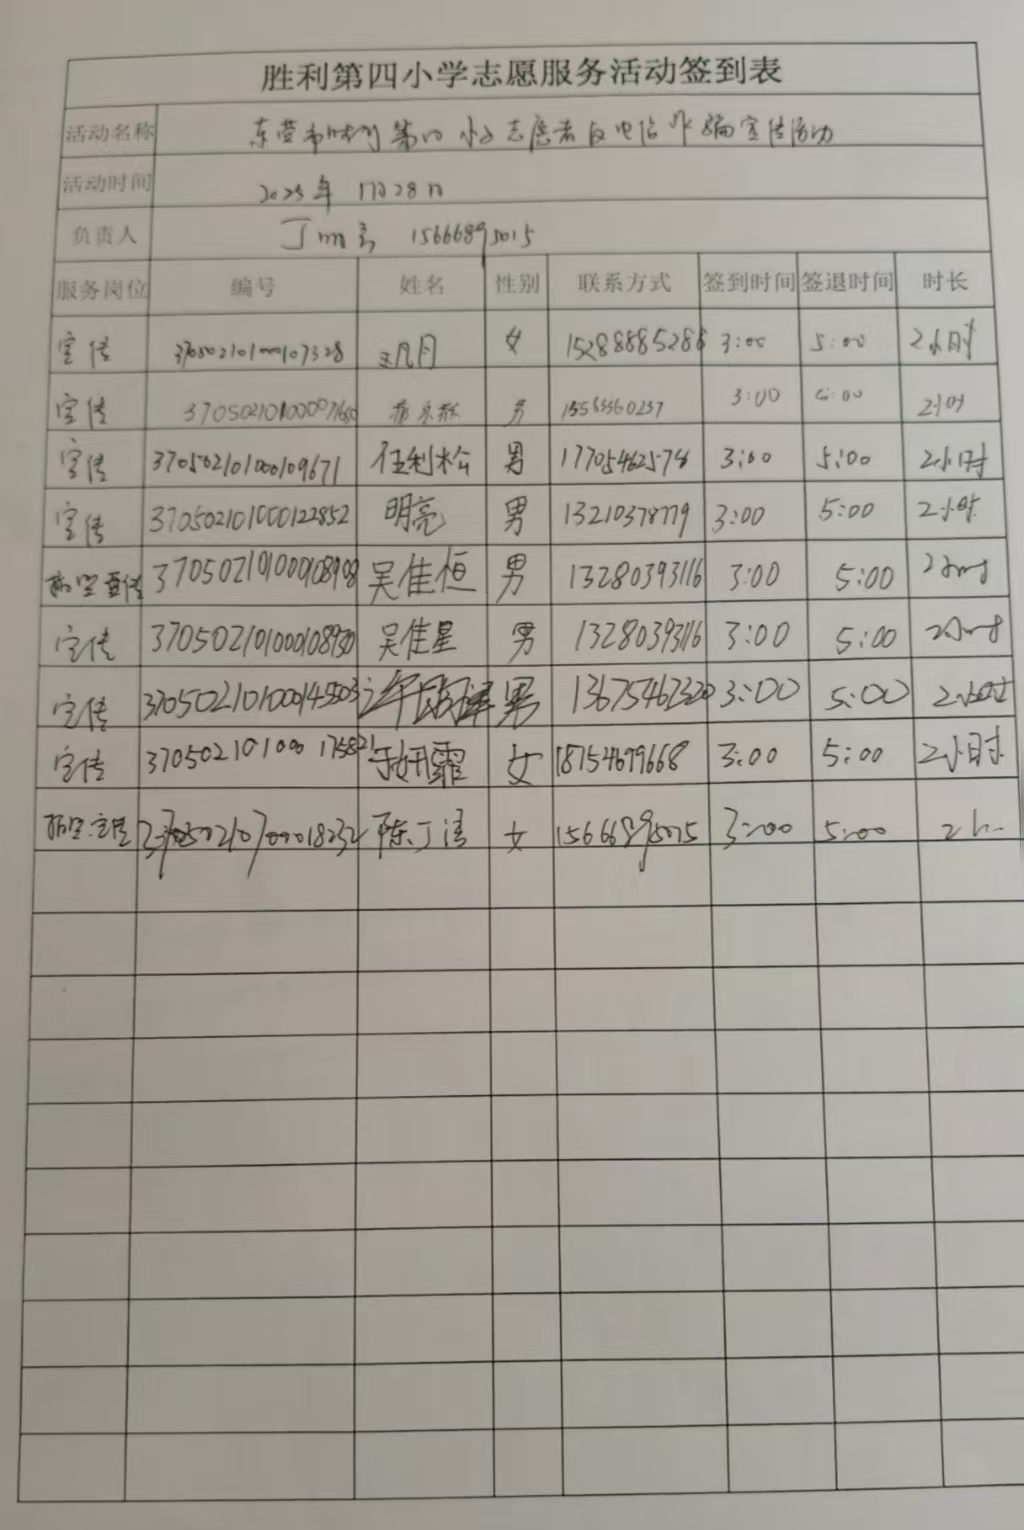 胜利第四小学志愿服务活动签到表
活动名称 东营市胜利第四小学志愿者反电信诈骗宣传活动
活动时间 2023年 28日
负责人 丁 15666895015
服务岗位 编号 姓名 性别 联系方式 签到时间 签退时间 时长
宣传 370502101000107328 王凡月 女 15288885288 3:00 5:00 2小时
宣传 男 3:00 2小时
宣传 370502101000109671 任利松 男 17705462578 3:00 5:00 2小时
宣传 370502101000122852 明亮 男 13210378779 3:00 5:00 2小时
宣传 370502101000108908 吴佳恒 男 13280393116 3:00 5:00 2小时
宣传 370502101000108930 吴佳星 男 13280393116 3:00 5:00 2小时
宣传 370502101000145503 男 13675467320 3:00 5:00 2小时
宣传 370502101000175821 于妍霏 女 18754679668 3:00 5:00 2小时
陈丁洁 女 15666895015 3:00 5:00 2h